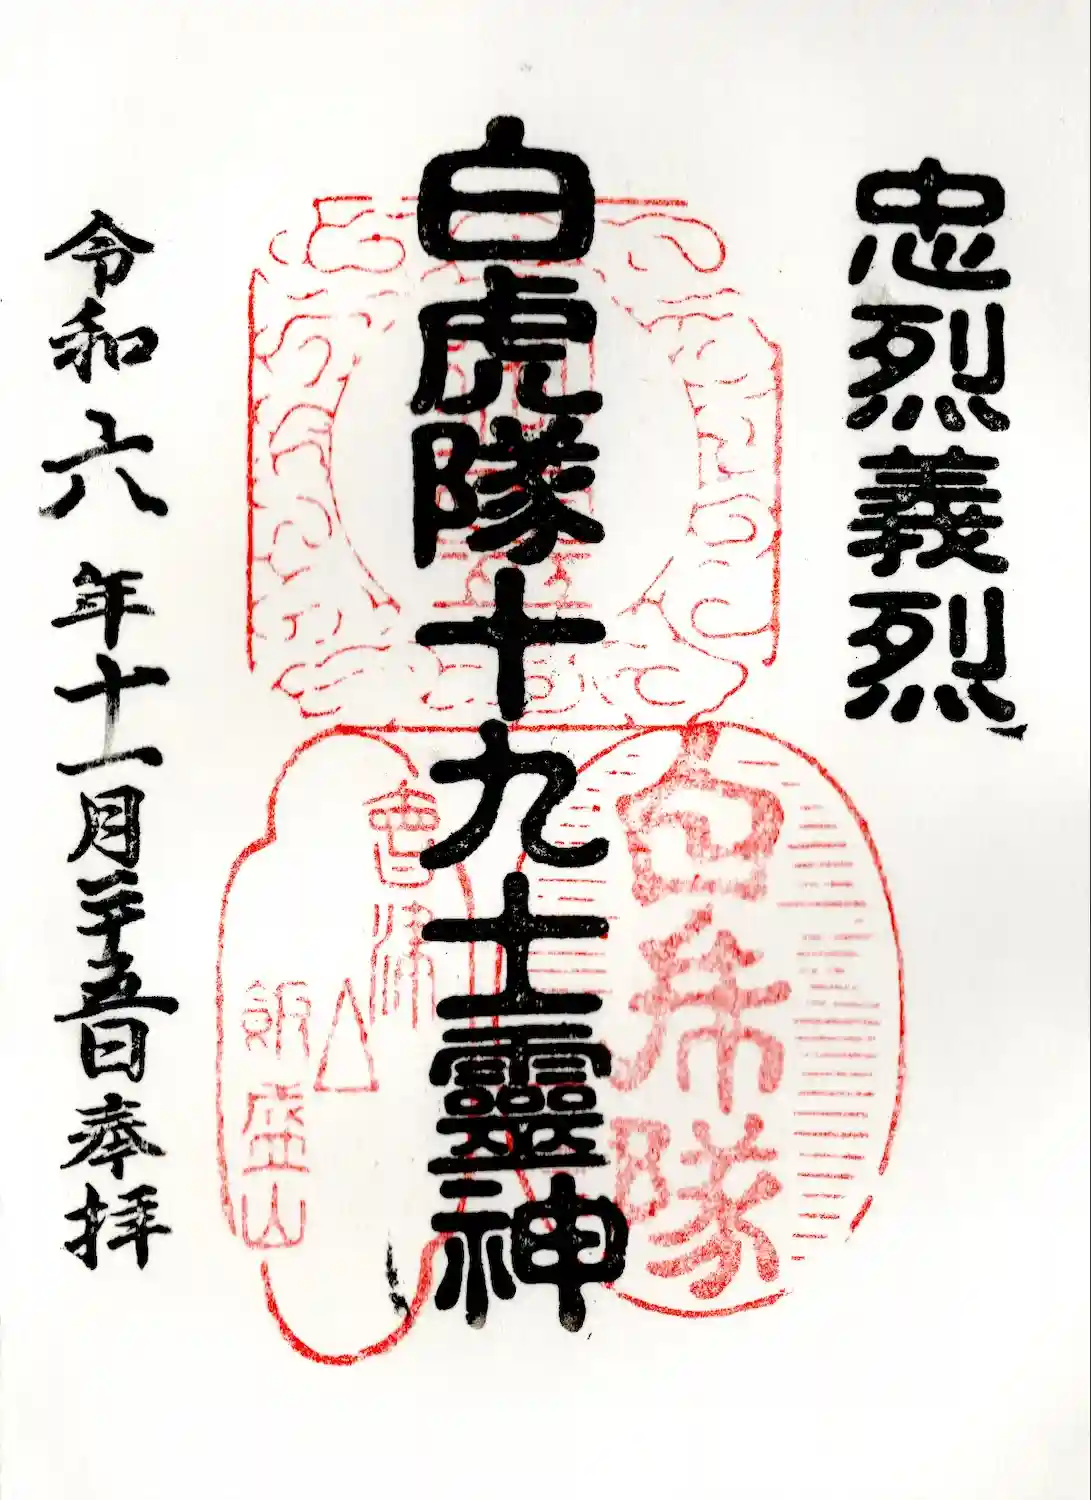 忠烈義烈
白虎隊十九士靈神
白虎隊
會津
飯盛山
令和六年十一月二十五日奉拝